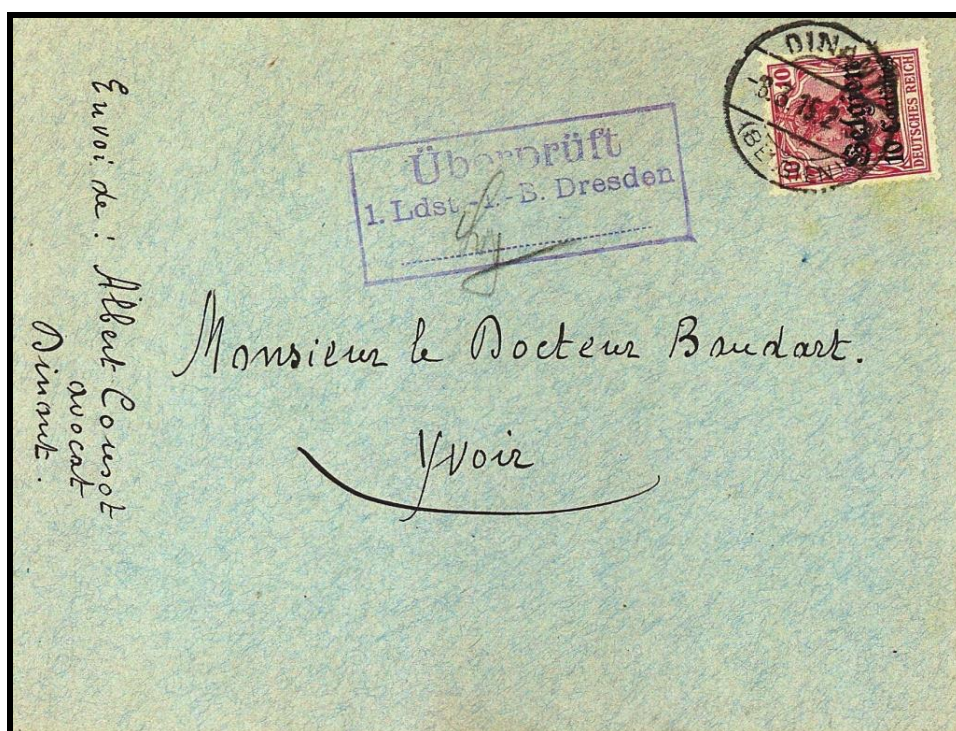 Envoi de : Albert Cousot
avocat
Dinant.
Überprüft
1. Ldst.-I.-B. Dresden
DEUTSCHES REICH
10
10
Belgien
10 Centimes
Monsieur le Docteur Baudart.
Yvoir